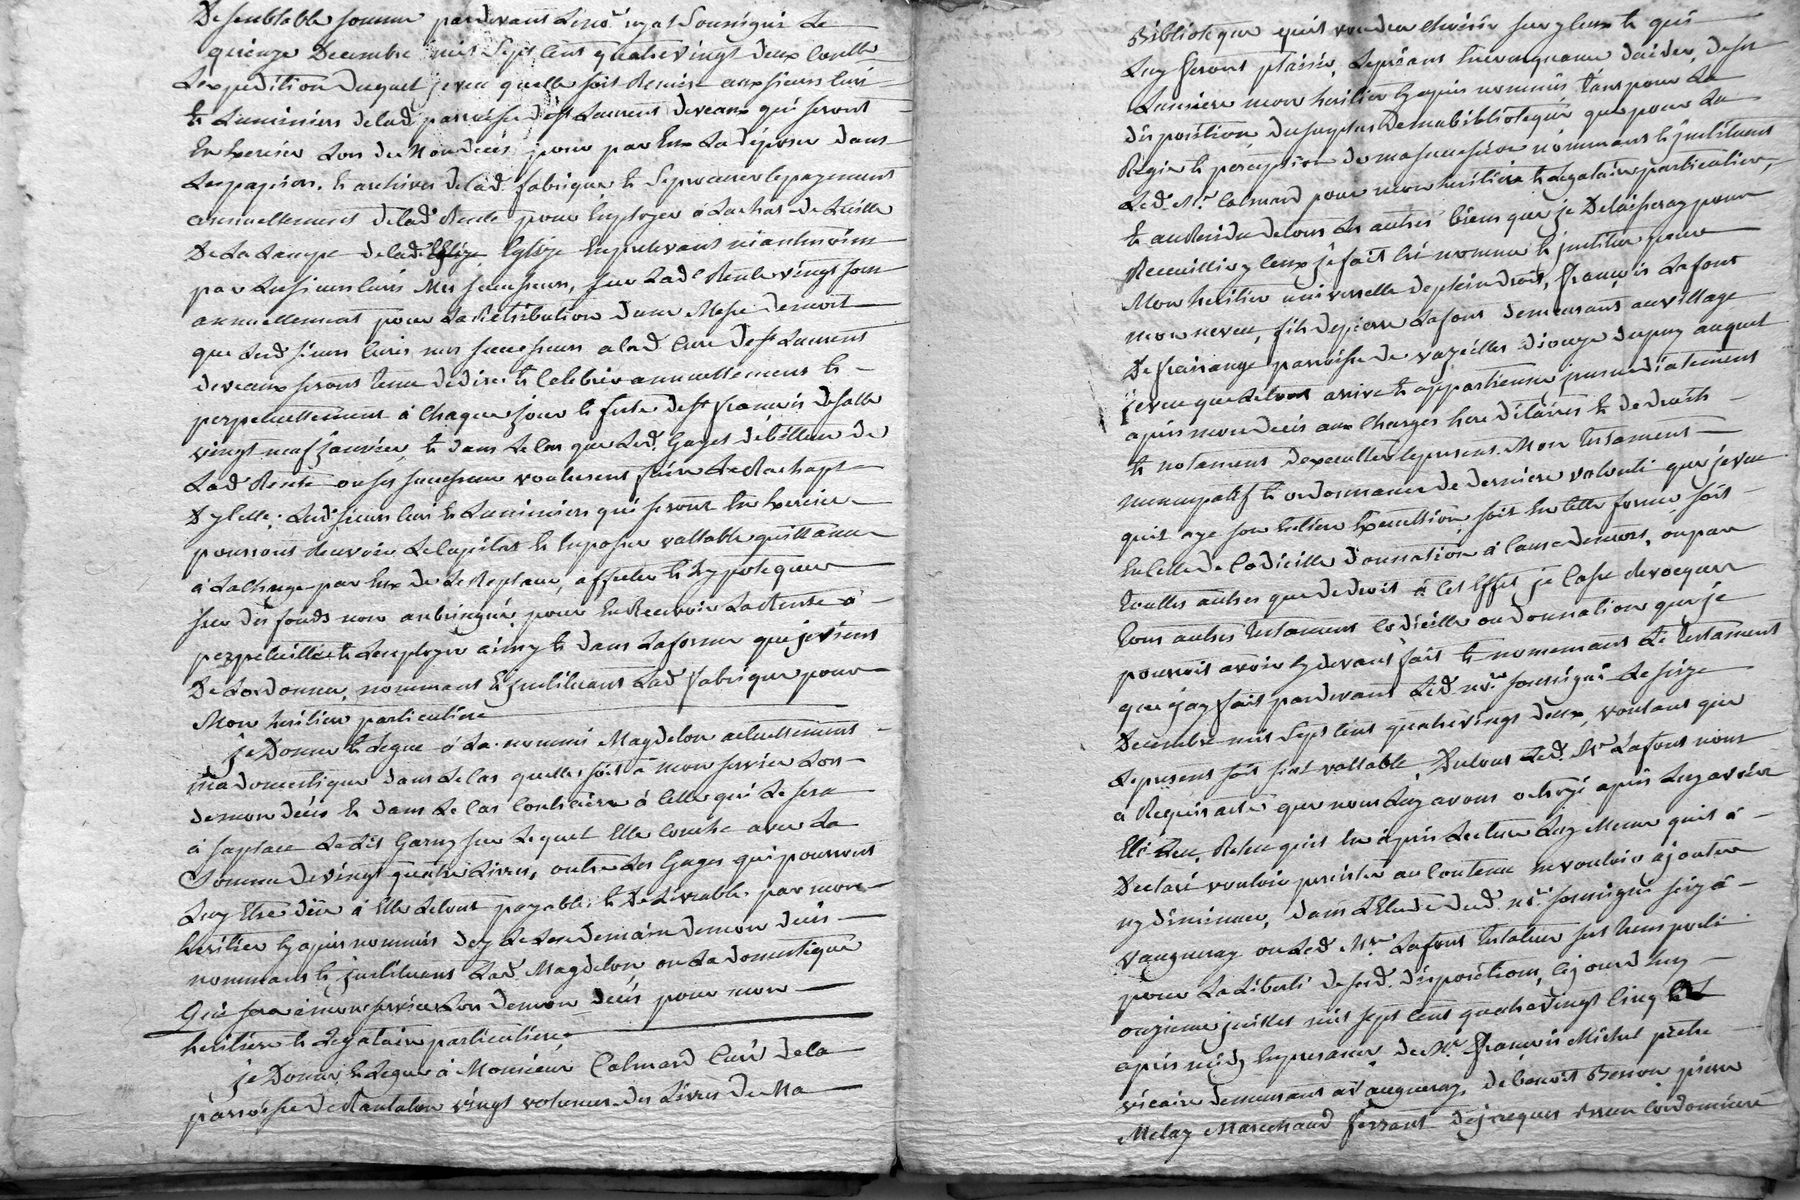 De semblable somme pardevant Le no.re royal soussigné Le
quinze Decembre mil sept cent quatrevingt deux
L'expedition duquel je veu quelle soit Remise aux sieurs curé
et Luminiers delad. parroisse de st Laurent deveaux qui seront
En Exercice Lors de Mon déces, pour par Eux La déposer dans
Les papiers, et archives delad. fabrique et se procurer le payement
annuellement delad. Rente pour Employer à Lachat de Luille
De La Lampe delad. Eglize Eglize En prelevant néantmoins
par Les sieurs curés Mes successeurs, sur Lad.e Rente vingt sous
annuellement pour La Retribution d'une Messe
que Lesd. sieurs curés mes successeurs a lad. Cure de st Laurent
deveaux seront tenu de dire et Celebrer annuellement et
perpetuellement à Chaque jour et feste de st françois desalle
vingt neuf janvier, et dans Le Cas que Led. Gayet débiteur de
Lad. Rente ou ses successeurs voulusent faire Le Rachapt
D'ycelle, Lesd. sieurs Curé et Luminiers qui seront En Exercice
pourront Recevoir Le Capital et En passer vallable quittance
à La Charge par Eux de Le Replacer, affecter et hypotequer
sur des fonds non pour En Recevoir La Rente à
perpétuité et L'employer ainsy et dans La forme que je viens
De Lordonner, nommant et instituant Lad. fabrique pour
Mon héritiere particuliere
je Donne et Legue à La nommé Magdelon actuellement
ma domestique dans Le Cas quelle soit à mon service Lors
de mon déces et dans Le Cas Contraire à Celle qui Le sera
à sa place Le Lit Garny sur Lequel Elle Couche avec La
Somme De vingt quatre Livres, outre Les Gages qui pourront
Luy Etre dûs à Elle Le tout payable et De Livrable par mon
heritier cy apres nommé dez Le Lendemain de mon déces
nommant et instituant Lad. Magdelon, ou La domestique
Qui sera à mon service Lors de mon déces pour mon
heritiere et Legataire particuliere
je Donne et Legue à Monsieur Calmard Curé de la
parroisse de vingt volumes des Livres De Ma
Biblioteque quil voudra Choisir sur yceux et qui
Luy feront plaisir, Le priant d'aider de ses
Lumieres mon heritier cy apres nommé tant pour La
disposition du surplus de ma biblioteque que pour La
Régie et perception de ma succession nommant et instituant
Led. M.r Calmard pour mon heritier et Legataire particulier,
et au Residu de tous Les autres biens que je Delaisseray pour
Recueillir yceux j'ai fait Cré nommé et institué pour
Mon heritier universelle de plein droit, françois Lafont
mon neveu, fils de pierre Lafont demeurant au village
De parroisse de vazeilles diouze dupuy auquel
je veu que Le tout arrive et appartienne immediatement
après mon déces aux Charges hors d'clairés et de droits
et notament D'executter Le present Mon testament
nuncupatif et ordonnance de derniere volonté que je veu
quil aye son Entiere Execution soit En telle forme, soit
En Celle de Codicille Donnation à Cause de mort, ou par
toutes autres que de droit à Cet Effet je Casse Revoque
tous autres testament Codicille ou donnation que je
pourrois avoir cy devant fait et nomement Le testament
que j'ay fait pardevant Led. no.re soussigné Le seize
Decembre mil sept cent quatrevingt deux, voulant que
Le present soit seul vallable, Dutout Led. Mr. Lafont nous
a Requis acte que nous Luy avons octroyé après Luy avoir
Eté Leu, Releu quil En après Lecture Luy Meme quil à
Declaré vouloir persister au Contenu ne vouloir ajouter
ny diminuer, dans L'Etude dud. no.re soussigné sise à
vaugneray ou Led. Mr. Lafont testateur sest transporté
pour La Liberté de sesd. dispositions, Cejourd huy
onzieme juillet mil sept cent quatrevingt cinq
après midy En presence de Mr. françois Michel prêtre
vicaire demeurant à vaugneray, de benoit Besson, pierre
Melay Marechaud ferrant de jacques Cordonnier